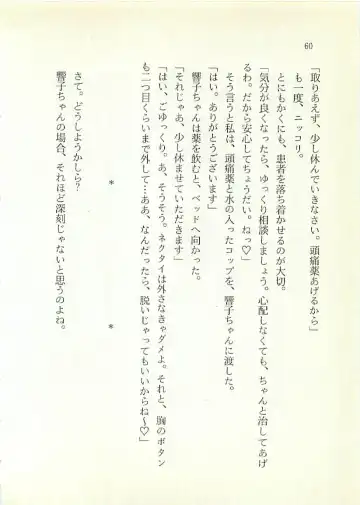 60
「取りあえず、少し休んでいきなさい。頭痛薬あげるから」
も一度、ニッコリ。
とにもかくにも、患者を落ち着かせるのが大切。
「気分が良くなったら、ゆっくり相談しましょう。心配しなくても、ちゃんと治してあげ
るわ。だから安心してちょうだい。ねっ♡」
そう言うと私は、頭痛薬と水の入ったコップを、響子ちゃんに渡した。
「はい。ありがとうございます」
響子ちゃんは薬を飲むと、ベッドへ向かった。
「それじゃあ、少し休ませていただきます」
「はい、ごゆっくり。あ、そうそう。ネクタイは外さなきゃダメよ。それと、胸のボタン
も二つ目くらいまで外して…ああ、なんだったら、脱いじゃってもいいからね〜♡」
＊　＊
さて。どうしようかしら？
響子ちゃんの場合、それほど深刻じゃないと思うのよね。